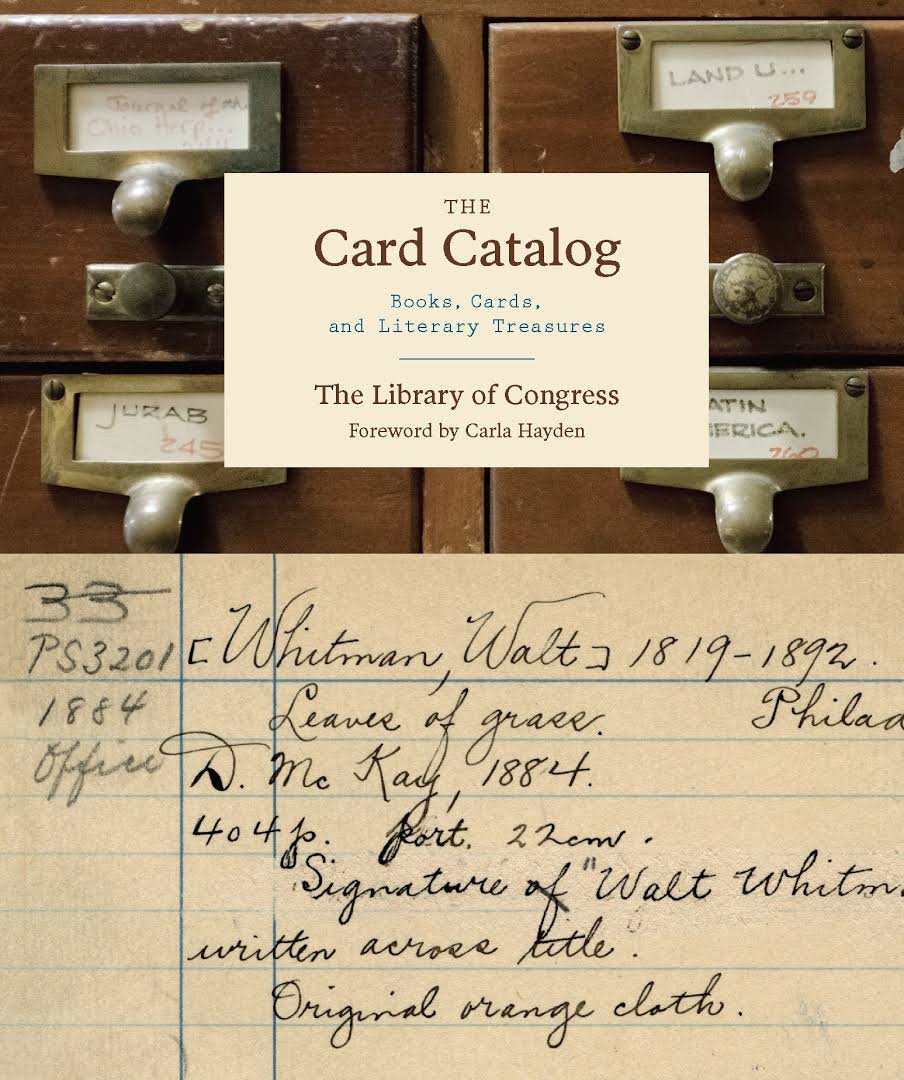 Journal of the
Ohio Herp...
LAND U...
259
THE
Card Catalog
Books, Cards,
and Literary Treasures
The Library of Congress
Foreword by Carla Hayden
JURAB
245
ATIN
ERICA.
260
33
PS3201 [Whitman, Walt] 1819-1892.
1884 Leaves of grass. Philad
Office D. Mc Kay, 1884.
404 p. port. 22cm.
"Signature of "Walt Whitm
written across title.
Original orange cloth.